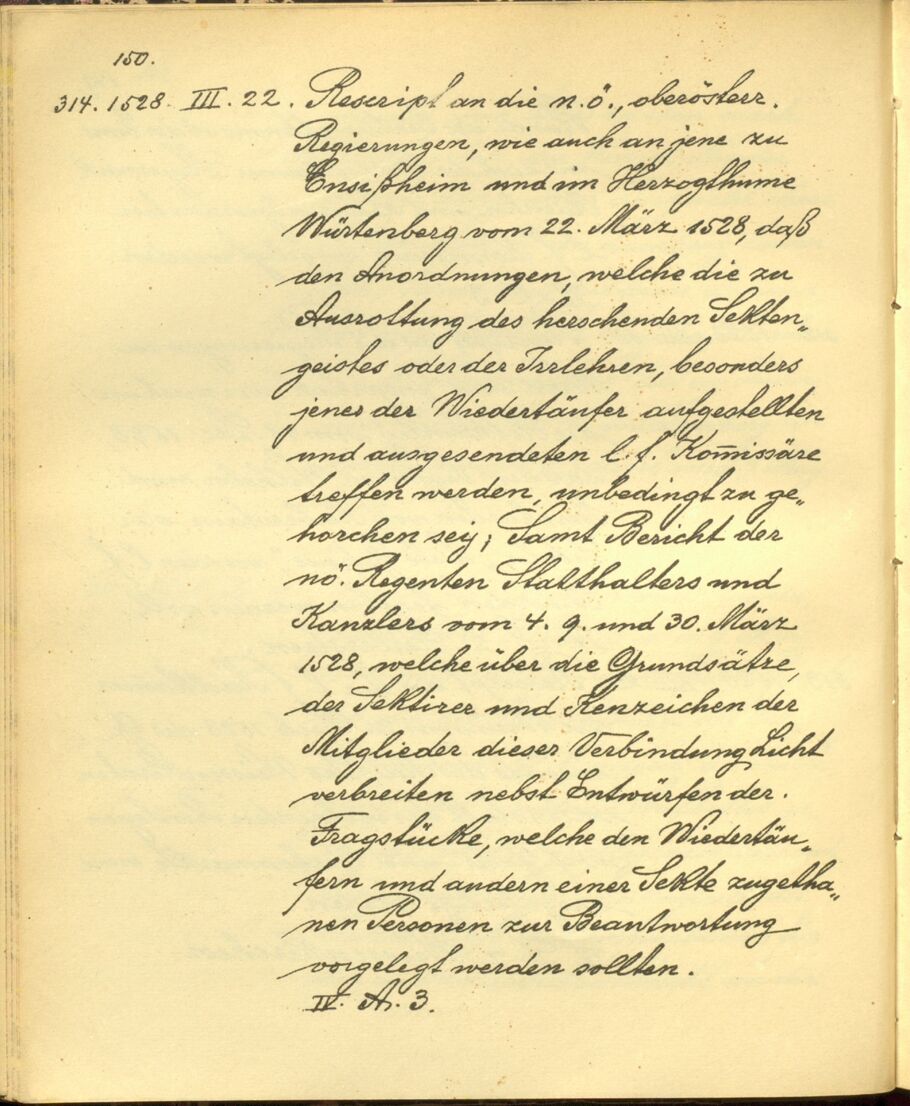 150.
314. 1528. III. 22. Rescript an die n.ö., oberösterr.
Regierungen, wie auch an jene zu
Ensißheim und im Herzogthume
Würtenberg vom 22. März 1528, daß
den Anordnungen, welche die zu
Ausrottung des herschenden Sekten„
geistes oder der Irrlehren, besonders
jener der Wiedertäufer aufgestellten
und ausgesendeten l. f. Kom̄issäre
treffen werden, unbedingt zu ge„
horchen seÿ; Samt Bericht der
nö. Regenten Statthalters und
Kanzlers vom 4. 9. und 30. März
1528, welche über die Grundsätze,
der Sektirer und Kenzeichen der
Mitglieder dieser Verbindung Licht
verbreiten nebst Entwürfen der.
Fragstücke, welche den Wiedertäu„
fern und andern einer Sekte zugetha„
nen Personen zur Beantwortung
vorgelegt werden sollten.
IV. A. 3.